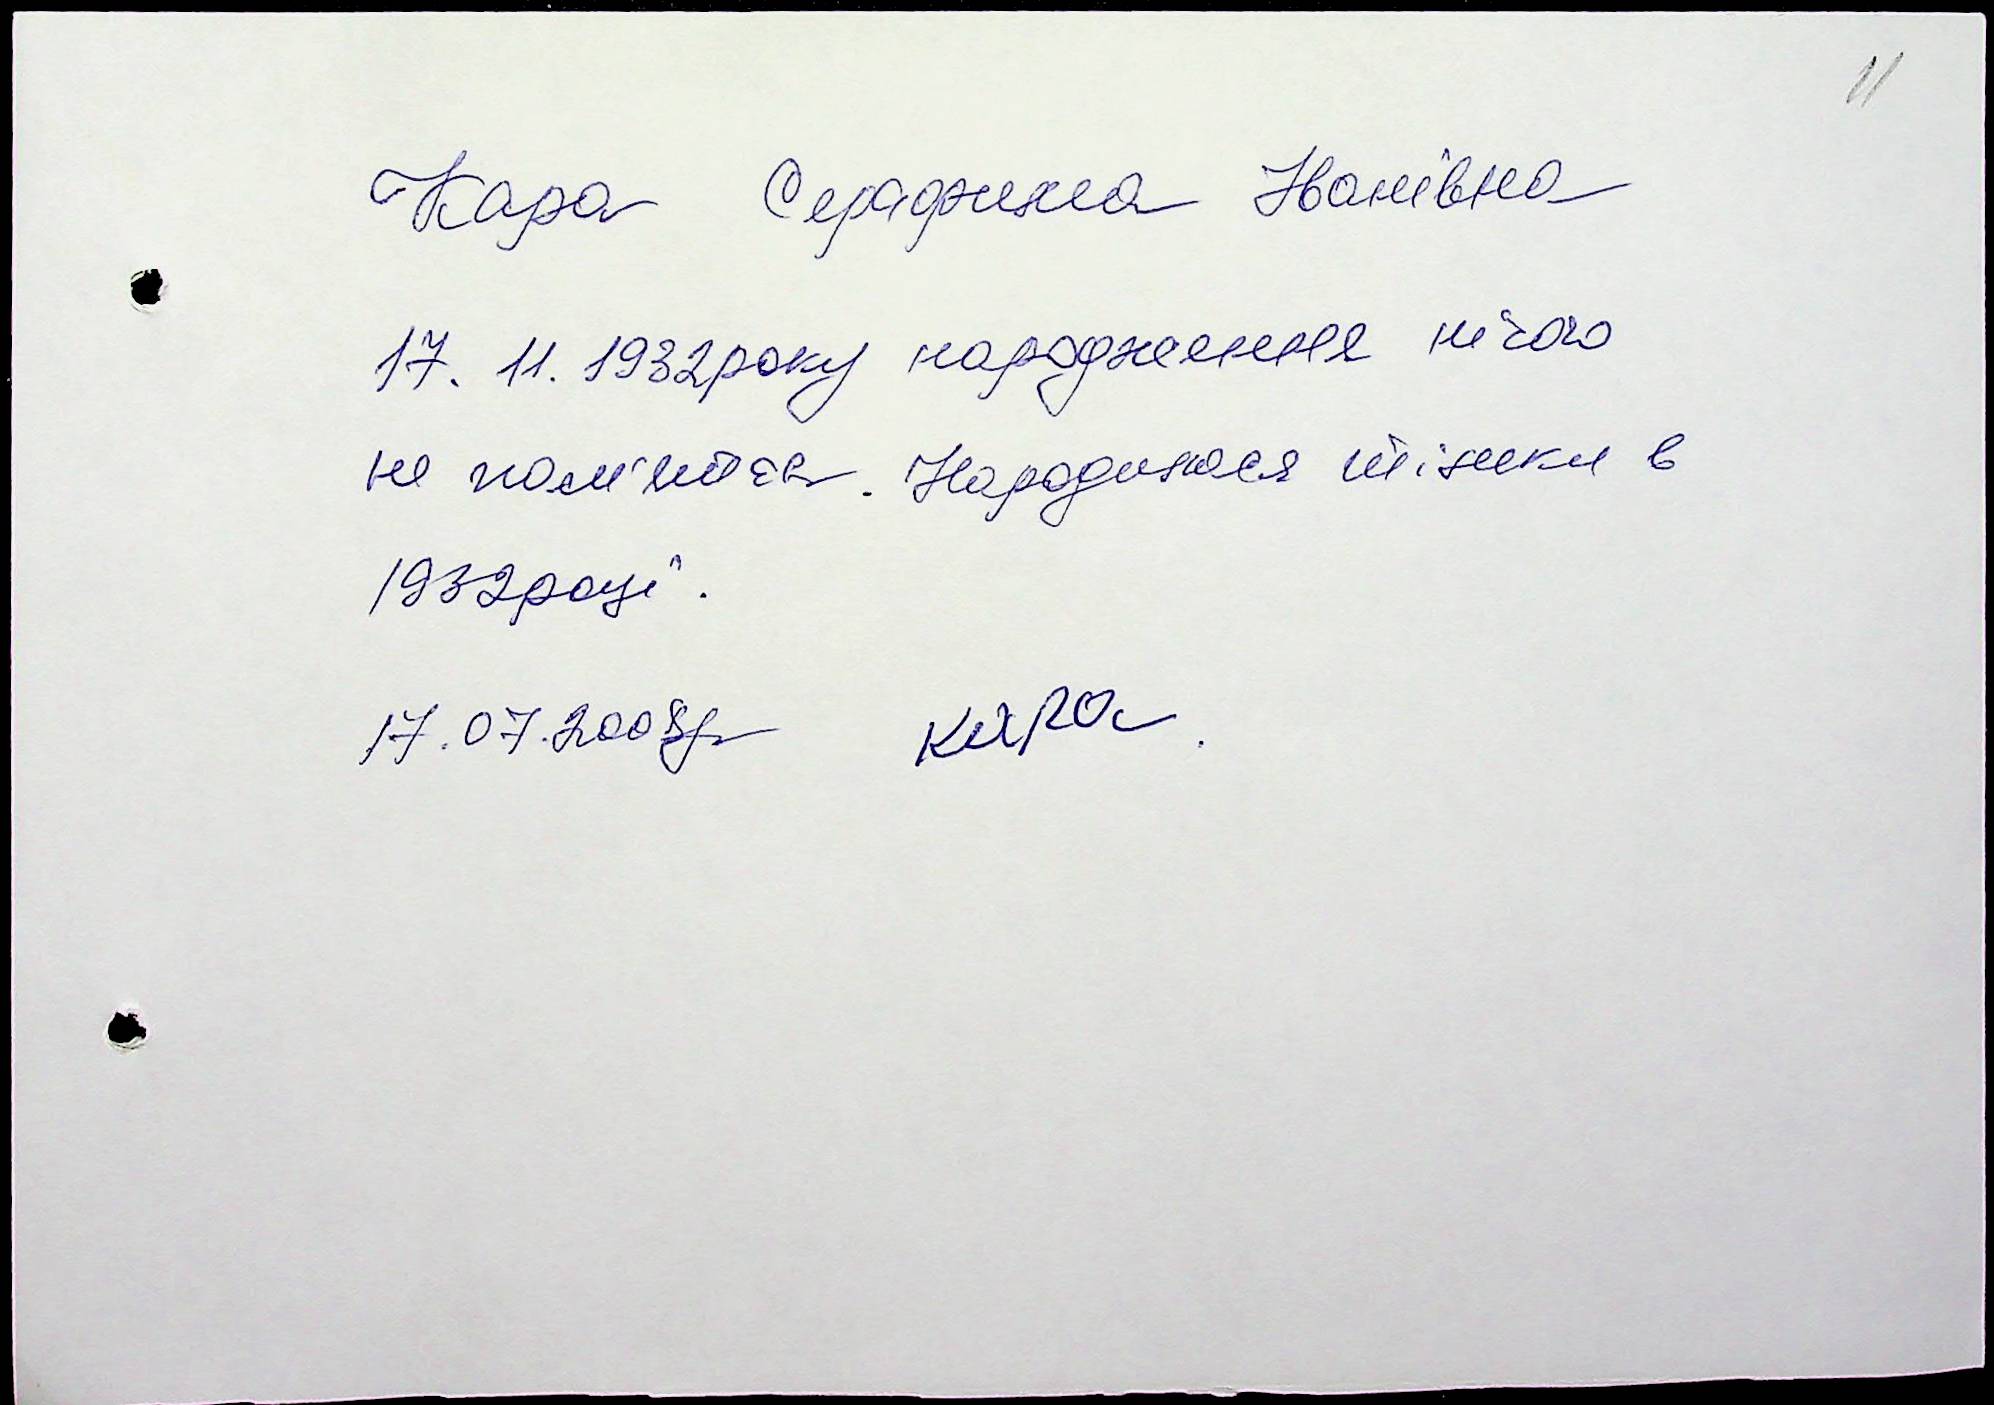 11
Кара Серафима Іванівна
17. 11. 1932 року народження нічого
не пам'ятає. Народилася тільки в
1932 році.
17.07.2008р Кара.